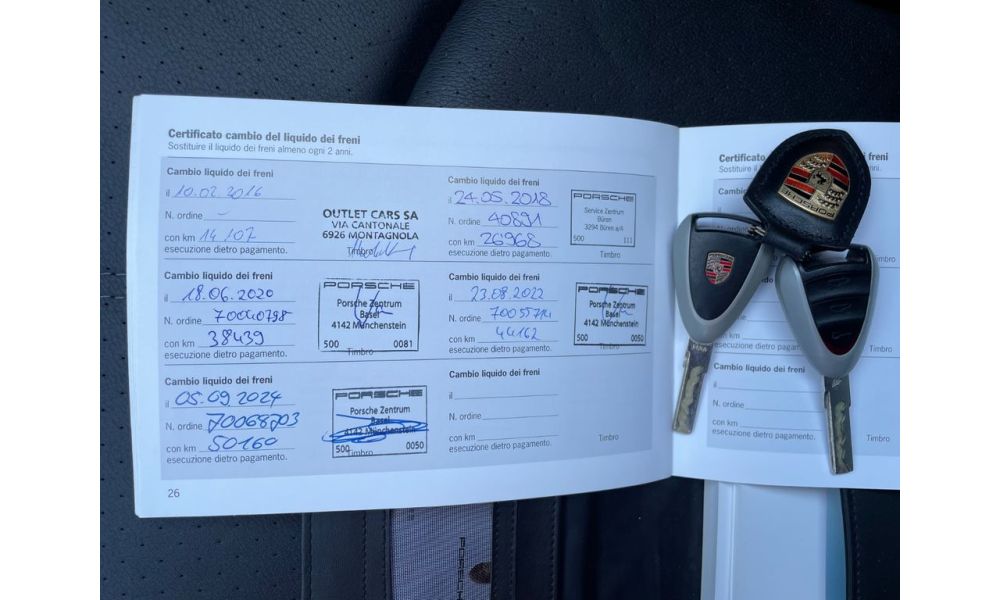 Certificato cambio del liquido dei freni
Sostituire il liquido dei freni almeno ogni 2 anni.
Cambio liquido dei freni
il 10.02.2016
N. ordine –
con km 14'107
esecuzione dietro pagamento.
OUTLET CARS SA
VIA CANTONALE
6926 MONTAGNOLA
Timbro
Cambio liquido dei freni
il 24.05.2018
N. ordine 40891
con km 26968
esecuzione dietro pagamento.
PORSCHE
Service Zentrum
Büren
3294 Büren a/A
500 111
Timbro
Cambio liquido dei freni
il 18.06.2020
N. ordine 70040798
con km 38439
esecuzione dietro pagamento.
PORSCHE
Porsche Zentrum
Basel
4142 Münchenstein
500 0081
Timbro
Cambio liquido dei freni
il 23.08.2022
N. ordine 70055714
con km 44162
esecuzione dietro pagamento.
PORSCHE
Porsche Zentrum
Basel
4142 Münchenstein
500 0050
Timbro
Cambio liquido dei freni
il 05.09.2024
N. ordine 70068703
con km 50160
esecuzione dietro pagamento.
PORSCHE
Porsche Zentrum
Basel
4142 Münchenstein
500 0050
Timbro
Cambio liquido dei freni
il
N. ordine
con km
esecuzione dietro pagamento.
Timbro
26
Certificato freni
Sostituire il
Cambio
il
N. ordine
con km
esecuzione dietro pagamento.
Timbro
Cambio liquido dei freni
il
N. ordine
con km
esecuzione dietro pagamento.
Timbro
PORSCHE
PORSCHE